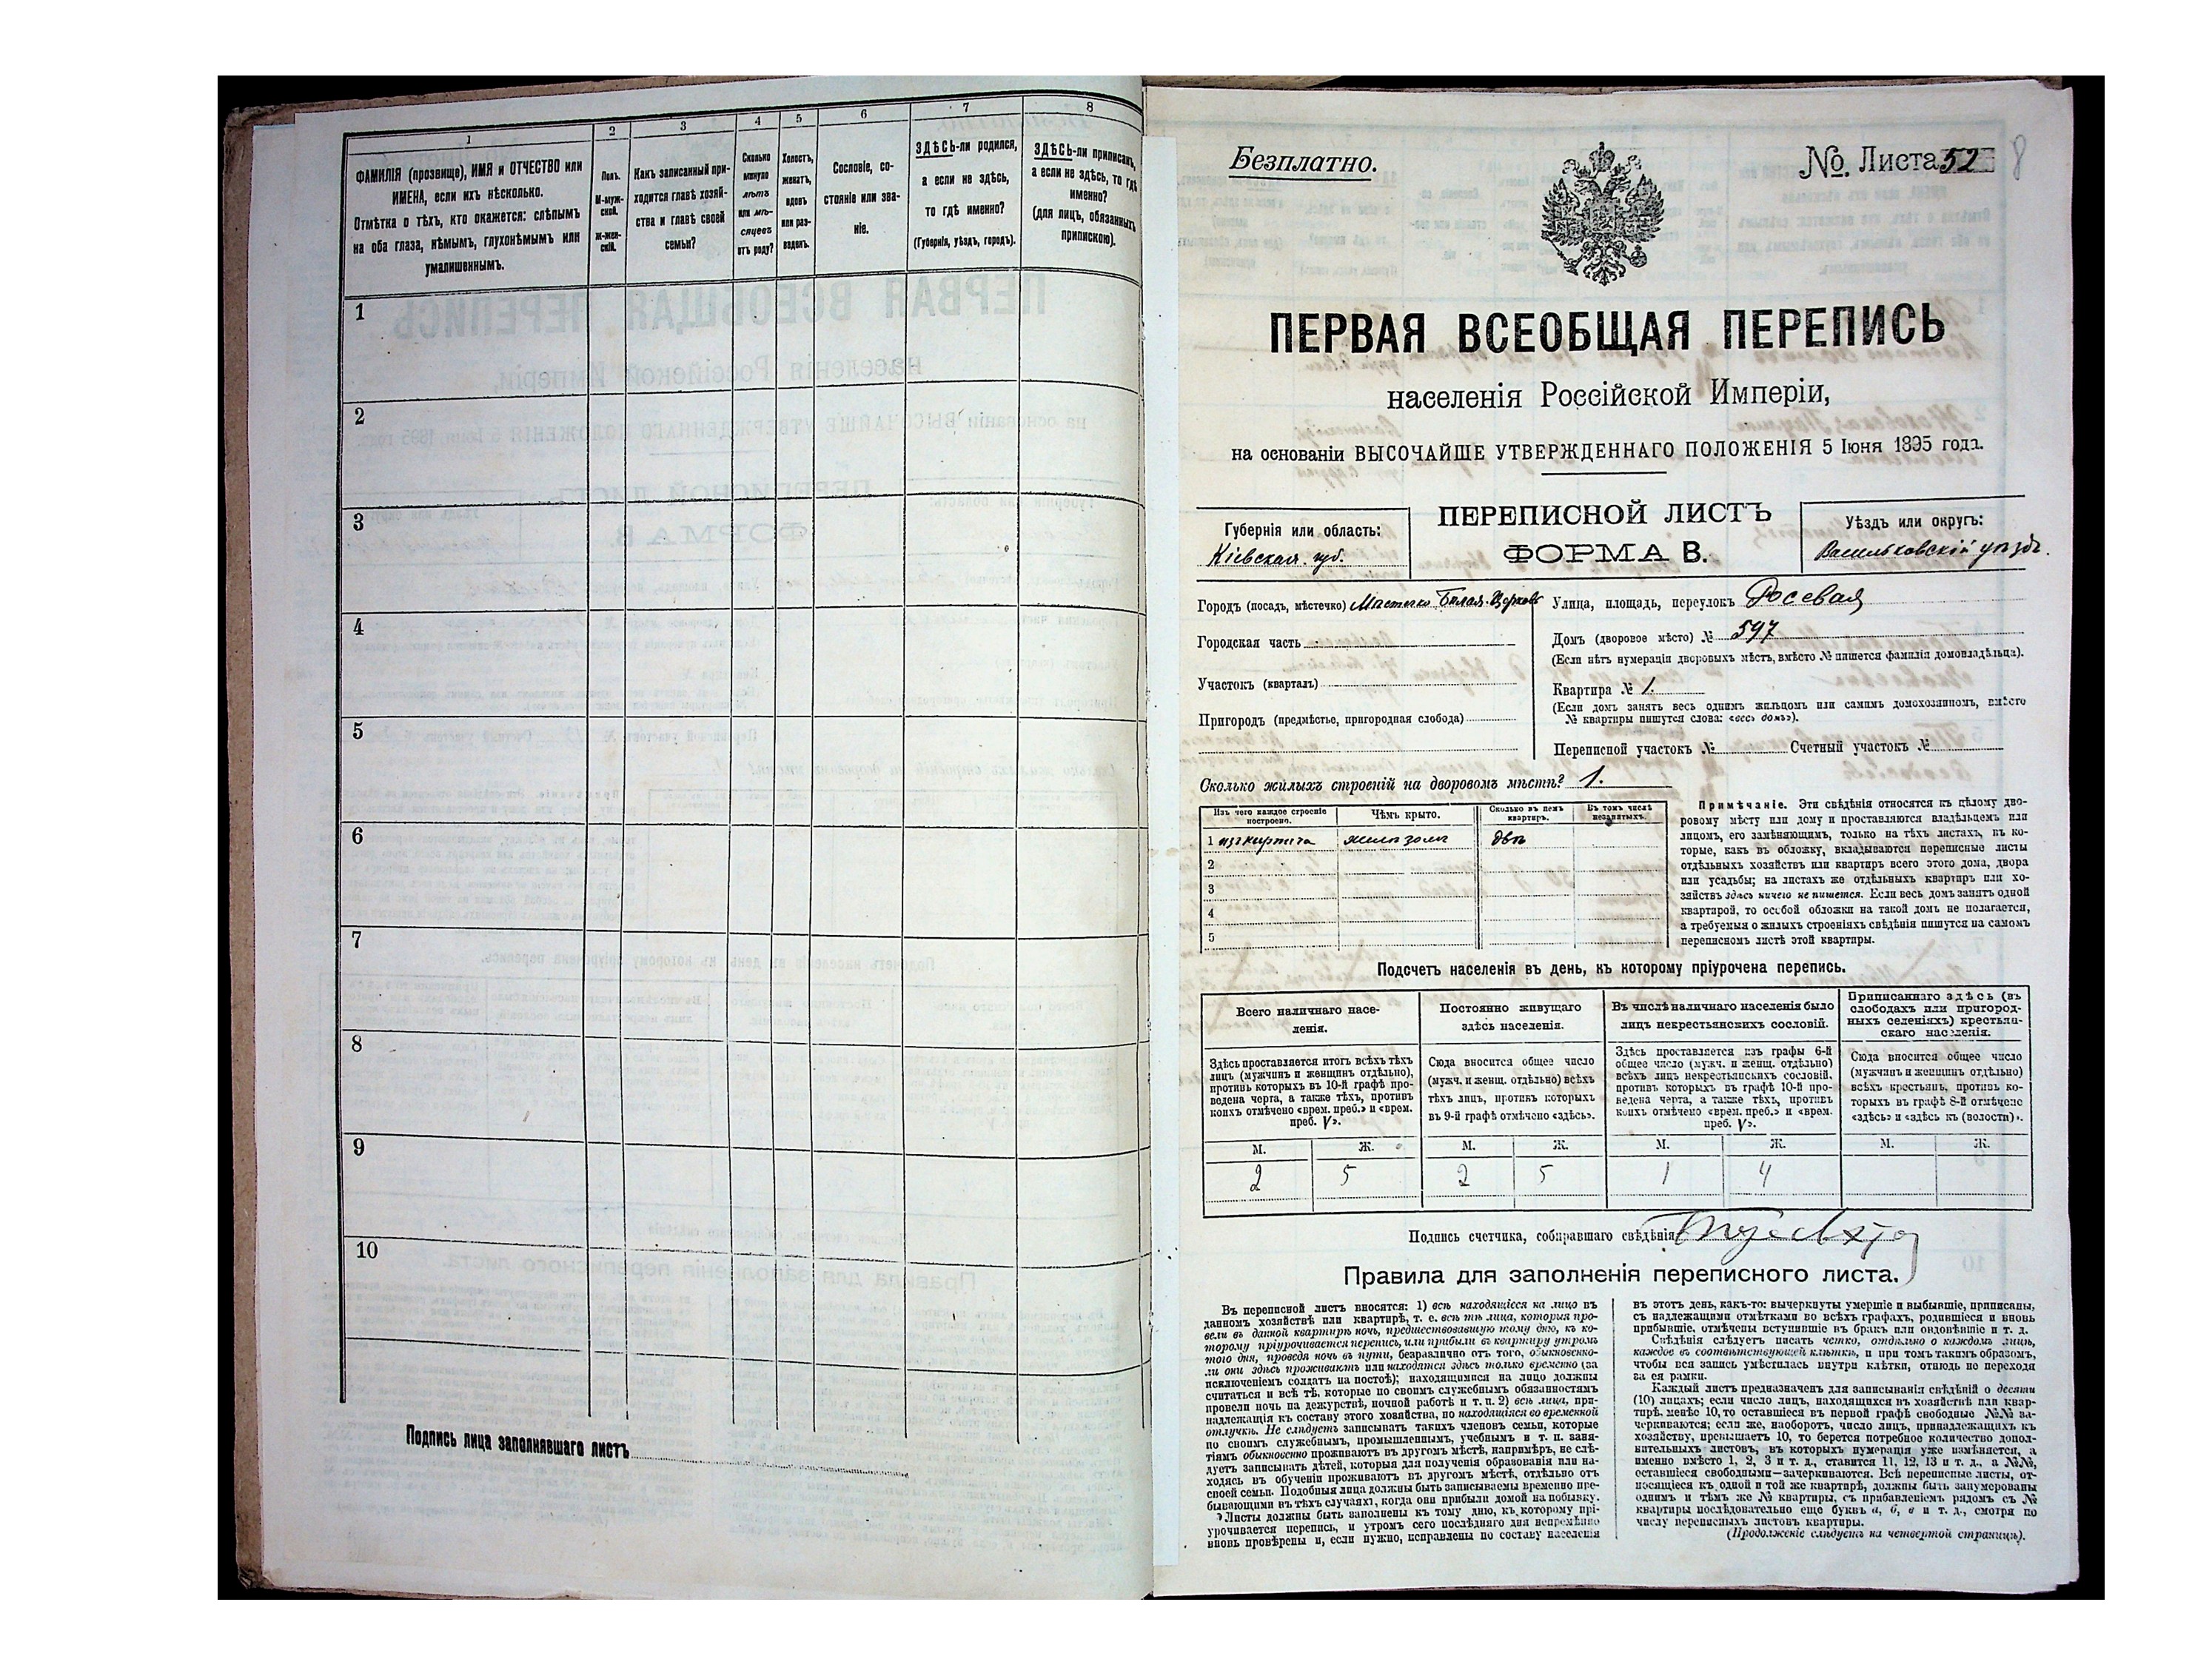 1
2
3
4
5
6
7
8
ФАМИЛІЯ (прозвище), ИМЯ и ОТЧЕСТВО или
ИМЕНА, если ихъ нѣсколько.
Отмѣтка о тѣхъ, кто окажется: слѣпымъ
на оба глаза, нѣмымъ, глухонѣмымъ или
умалишеннымъ.
Полъ.
М-муж-
ской.
Ж-жен-
скій.
Какъ записанный при-
ходится главѣ хозяй-
ства и главѣ своей
семьи?
Сколько
минуло
лѣтъ
или мѣ-
сяцевъ
отъ роду?
Холостъ,
женатъ,
вдовъ
или раз-
веденъ.
Сословіе, со-
стояніе или зва-
ніе.
ЗДѢСЬ-ли родился,
а если не здѣсь,
то гдѣ именно?
(Губернія, уѣздъ, городъ).
ЗДѢСЬ-ли приписанъ,
а если не здѣсь, то гдѣ
именно?
(для лицъ, обязанныхъ
припискою).
1
2
3
4
5
6
7
8
9
10
Подпись лица заполнявшаго листъ
Безплатно.
No. Листа 52
8
ПЕРВАЯ ВСЕОБЩАЯ ПЕРЕПИСЬ
населенія Россійской Имперіи,
на основаніи ВЫСОЧАЙШЕ УТВЕРЖДЕННАГО ПОЛОЖЕНІЯ 5 Іюня 1895 года.
Губернія или область:
Кіевская губ.
ПЕРЕПИСНОЙ ЛИСТЪ
ФОРМА В.
Уѣздъ или округъ:
Васильковскій уѣздъ.
Городъ (посадъ, мѣстечко) Мѣстечко Бѣлая-Церковь
Городская часть
Участокъ (кварталъ)
Пригородъ (предмѣстье, пригородная слобода)
Улица, площадь, переулокъ Росевая
Домъ (дворовое мѣсто) № 597
(Если нѣтъ нумерація дворовыхъ мѣстъ, вмѣсто № пишется фамилія домовладѣльца).
Квартира № 1.
(Если домъ занятъ весь однимъ жильцомъ или самимъ домохозяиномъ, вмѣсто
№ квартиры пишутся слова: «весь домъ»).
Переписной участокъ № Счетный участокъ №
Сколько жилыхъ строеній на дворовомъ мѣстѣ? 1.
Изъ чего каждое строеніе
построено.
Чѣмъ крыто.
Сколько въ немъ
квартиръ.
Въ томъ числѣ
незанятыхъ.
1 изъ кирпича желѣзомъ двѣ
2
3
4
5
Примѣчаніе. Эти свѣдѣнія относятся къ цѣлому дво-
ровому мѣсту или дому и проставляются владѣльцемъ или
лицомъ, его замѣняющимъ, только на тѣхъ листахъ, въ ко-
торые, какъ въ обложку, вкладываются переписные листы
отдѣльныхъ хозяйствъ или квартиръ всего этого дома, двора
или усадьбы; на листахъ же отдѣльныхъ квартиръ или хо-
зяйствъ здѣсь ничего не пишется. Если весь домъ занятъ одной
квартирой, то особой обложки на такой домъ не полагается,
а требуемыя о жилыхъ строеніяхъ свѣдѣнія пишутся на самомъ
переписномъ листѣ этой квартиры.
Подсчетъ населенія въ день, къ которому пріурочена перепись.
Всего наличнаго насе-
ленія.
Постоянно живущаго
здѣсь населенія.
Въ числѣ наличнаго населенія было
лицъ некрестьянскихъ сословій.
Приписаннаго здѣсь (въ
слободахъ или пригород-
ныхъ селеніяхъ) крестьян-
скаго населенія.
Здѣсь проставляется итогъ всѣхъ тѣхъ
лицъ (мужчинъ и женщинъ отдѣльно),
противъ которыхъ въ 10-й графѣ про-
ведена черта, а также тѣхъ, противъ
коихъ отмѣчено «врем. преб.» и «врем.
преб. V».
Сюда вносится общее число
(мужч. и женщ. отдѣльно) всѣхъ
тѣхъ лицъ, противъ которыхъ
въ 9-й графѣ отмѣчено «здѣсь».
Здѣсь проставляется изъ графы 6-й
общее число (мужч. и женщ. отдѣльно)
всѣхъ лицъ некрестьянскихъ сословій,
противъ которыхъ въ графѣ 10-й про-
ведена черта, а также тѣхъ, противъ
коихъ отмѣчено «врем. преб.» и «врем.
преб. V».
Сюда вносится общее число
(мужчинъ и женщинъ отдѣльно)
всѣхъ крестьянъ, противъ ко-
торыхъ въ графѣ 8-й отмѣчено
«здѣсь» и «здѣсь къ (волости)».
М. Ж. М. Ж. М. Ж. М. Ж.
2 5 2 5 1 4
Подпись счетчика, собиравшаго свѣдѣнія
Правила для заполненія переписного листа.
Въ переписной листъ вносятся: 1) всѣ находящіеся на лицо въ
данномъ хозяйствѣ или квартирѣ, т. е. всѣ тѣ лица, которыя про-
вели въ данной квартирѣ ночь, предшествовавшую тому дню, къ ко-
торому пріурочивается перепись, или прибыли въ квартиру утромъ
того дня, проведя ночь въ пути, безразлично отъ того, обыкновенно-
ли они здѣсь проживаютъ или находятся здѣсь только временно (за
исключеніемъ солдатъ на постоѣ); находящимися на лицо должны
считаться и всѣ тѣ, которые по своимъ служебнымъ обязанностямъ
провели ночь на дежурствѣ, ночной работѣ и т. п. 2) всѣ лица, при-
надлежащія къ составу этого хозяйства, но находящіяся во временной
отлучкѣ. Не слѣдуетъ записывать такихъ членовъ семьи, которые
по своимъ служебнымъ, промышленнымъ, учебнымъ и т. п. заня-
тіямъ обыкновенно проживаютъ въ другомъ мѣстѣ, напримѣръ, не слѣ-
дуетъ записывать дѣтей, которыя для полученія образованія или на-
ходясь въ обученіи проживаютъ въ другомъ мѣстѣ, отдѣльно отъ
своей семьи. Подобныя лица должны быть записываемы временно пре-
бывающими въ тѣхъ случаяхъ, когда они прибыли домой на побывку.
Листы должны быть заполнены къ тому дню, къ которому прі-
урочивается перепись, и утромъ сего послѣдняго дня непремѣнно
вновь провѣрены и, если нужно, исправлены по составу населенія
въ этотъ день, какъ-то: вычеркнуты умершіе и выбывшіе, приписаны,
съ надлежащими отмѣтками во всѣхъ графахъ, родившіеся и вновь
прибывшіе, отмѣчены вступившіе въ бракъ или овдовѣвшіе и т. д.
Свѣдѣнія слѣдуетъ писать четко, отдѣльно о каждомъ лицѣ,
каждое въ соотвѣтствующей клѣткѣ, и при томъ такимъ образомъ,
чтобы вся запись умѣстилась внутри клѣтки, отнюдь не переходя
за ея рамки.
Каждый листъ предназначенъ для записыванія свѣдѣній о десяти
(10) лицахъ; если число лицъ, находящихся въ хозяйствѣ или квар-
тирѣ, менѣе 10, то оставшіеся въ первой графѣ свободные №№ за-
черкиваются; если же, наоборотъ, число лицъ, принадлежащихъ къ
хозяйству, превышаетъ 10, то берется потребное количество допол-
нительныхъ листовъ, въ которыхъ нумерація уже измѣняется, а
именно вмѣсто 1, 2, 3 и т. д., ставится 11, 12, 13 и т. д., а №№,
оставшіеся свободными—зачеркиваются. Всѣ переписные листы, от-
носящіеся къ одной и той же квартирѣ, должны быть занумерованы
однимъ и тѣмъ же № квартиры, съ прибавленіемъ рядомъ съ №
квартиры послѣдовательно еще буквъ а, б, в и т. д., смотря по
числу переписныхъ листовъ квартиры.
(Продолженіе слѣдуетъ на четвертой страницѣ).